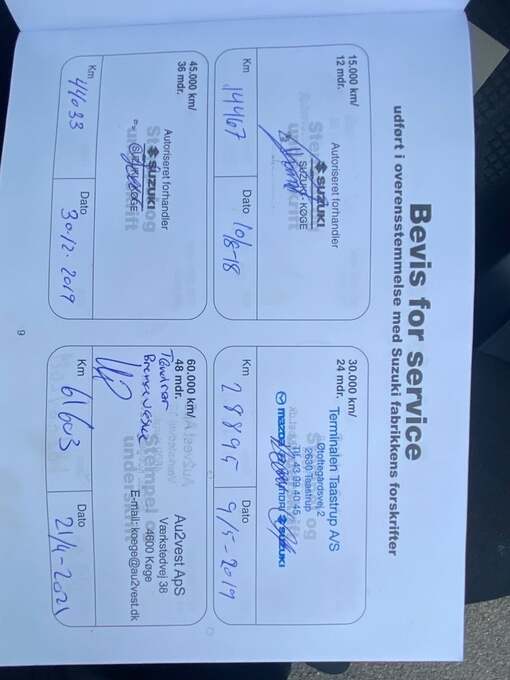 Bevis for service
udført i overensstemmelse med Suzuki fabrikkens forskrifter
15.000 km/
12 mdr.
Autoriseret forhandler
SUZUKI
SUZUKI - KØGE
Km
14467
Dato
10/8-18
30.000 km/
24 mdr.
Terminalen Taastrup A/S
Otoftegårdsvej 2
2630 Taastrup
Tlf. 43 99 40 45
mazda
SUZUKI
Km
28895
Dato
9/5-2019
45.000 km/
36 mdr.
Autoriseret forhandler
SUZUKI
KØGE
Km
44033
Dato
30.12.2019
60.000 km/
48 mdr.
Stempel og
underskrift
Au2vest ApS
Værkstedvej 38
4600 Køge
E-mail: koege@au2vest.dk
Km
61603
Dato
21/4-2021
9